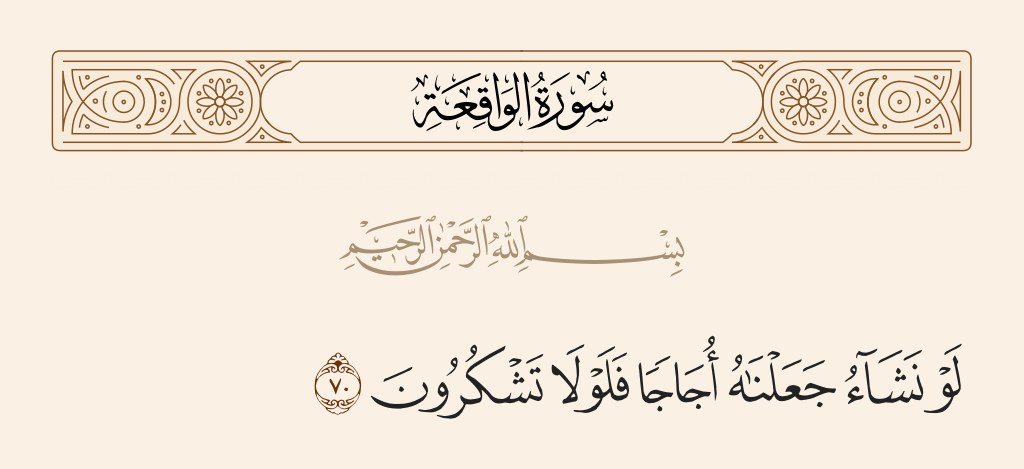 سُورَةُ الوَاقِعَةِ
بِسْمِ ٱللَّهِ ٱلرَّحْمَٰنِ ٱلرَّحِيمِ
لَوْ نَشَآءُ جَعَلْنَٰهُ أُجَاجًا فَلَوْلَا تَشْكُرُونَ ٧٠